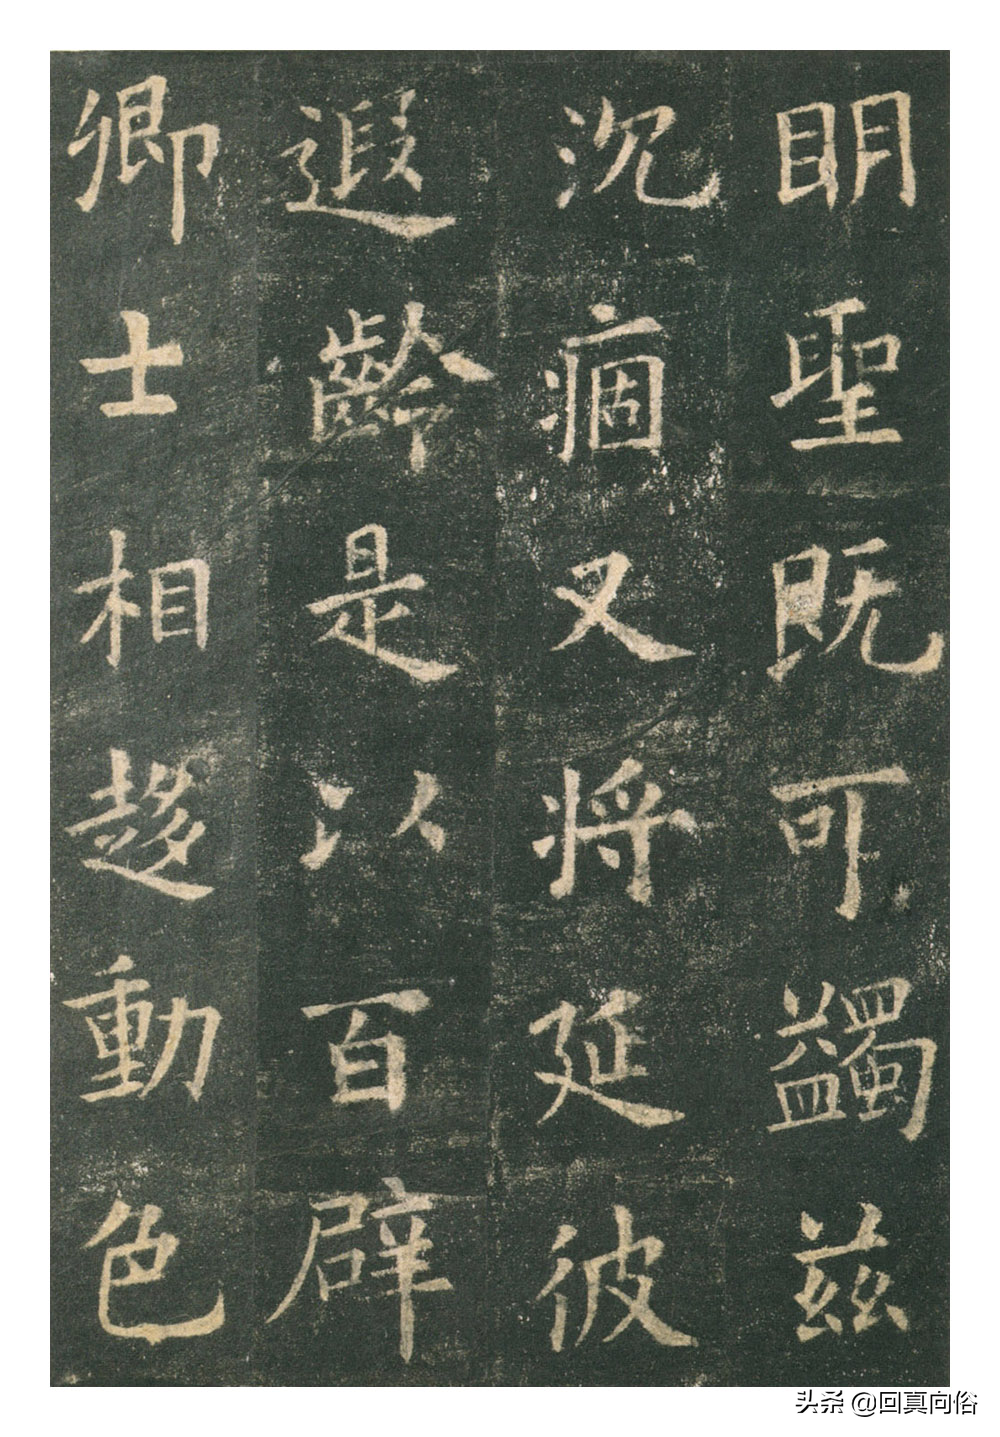 明聖既可蠲兹
沉痼又将延彼
遐齡是以百辟
卿士相趍動色
头条 @回真向俗